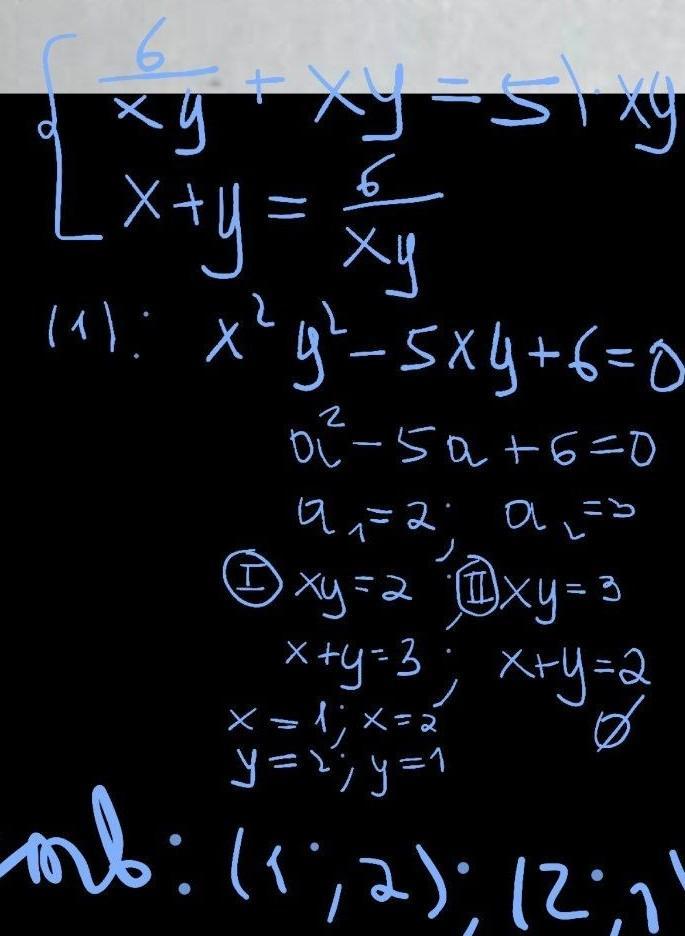 6/xy + xy = 5 | · xy
x+y = 6/xy
(1): x² y² – 5xy + 6 = 0
a² – 5a + 6 = 0
a₁ = 2; a₂ = 3
Ⅰ xy = 2 ; Ⅱ xy = 3
x+y = 3 ; x+y = 2
x = 1; x = 2 ∅
y = 2; y = 1
(1; 2); (2; 1